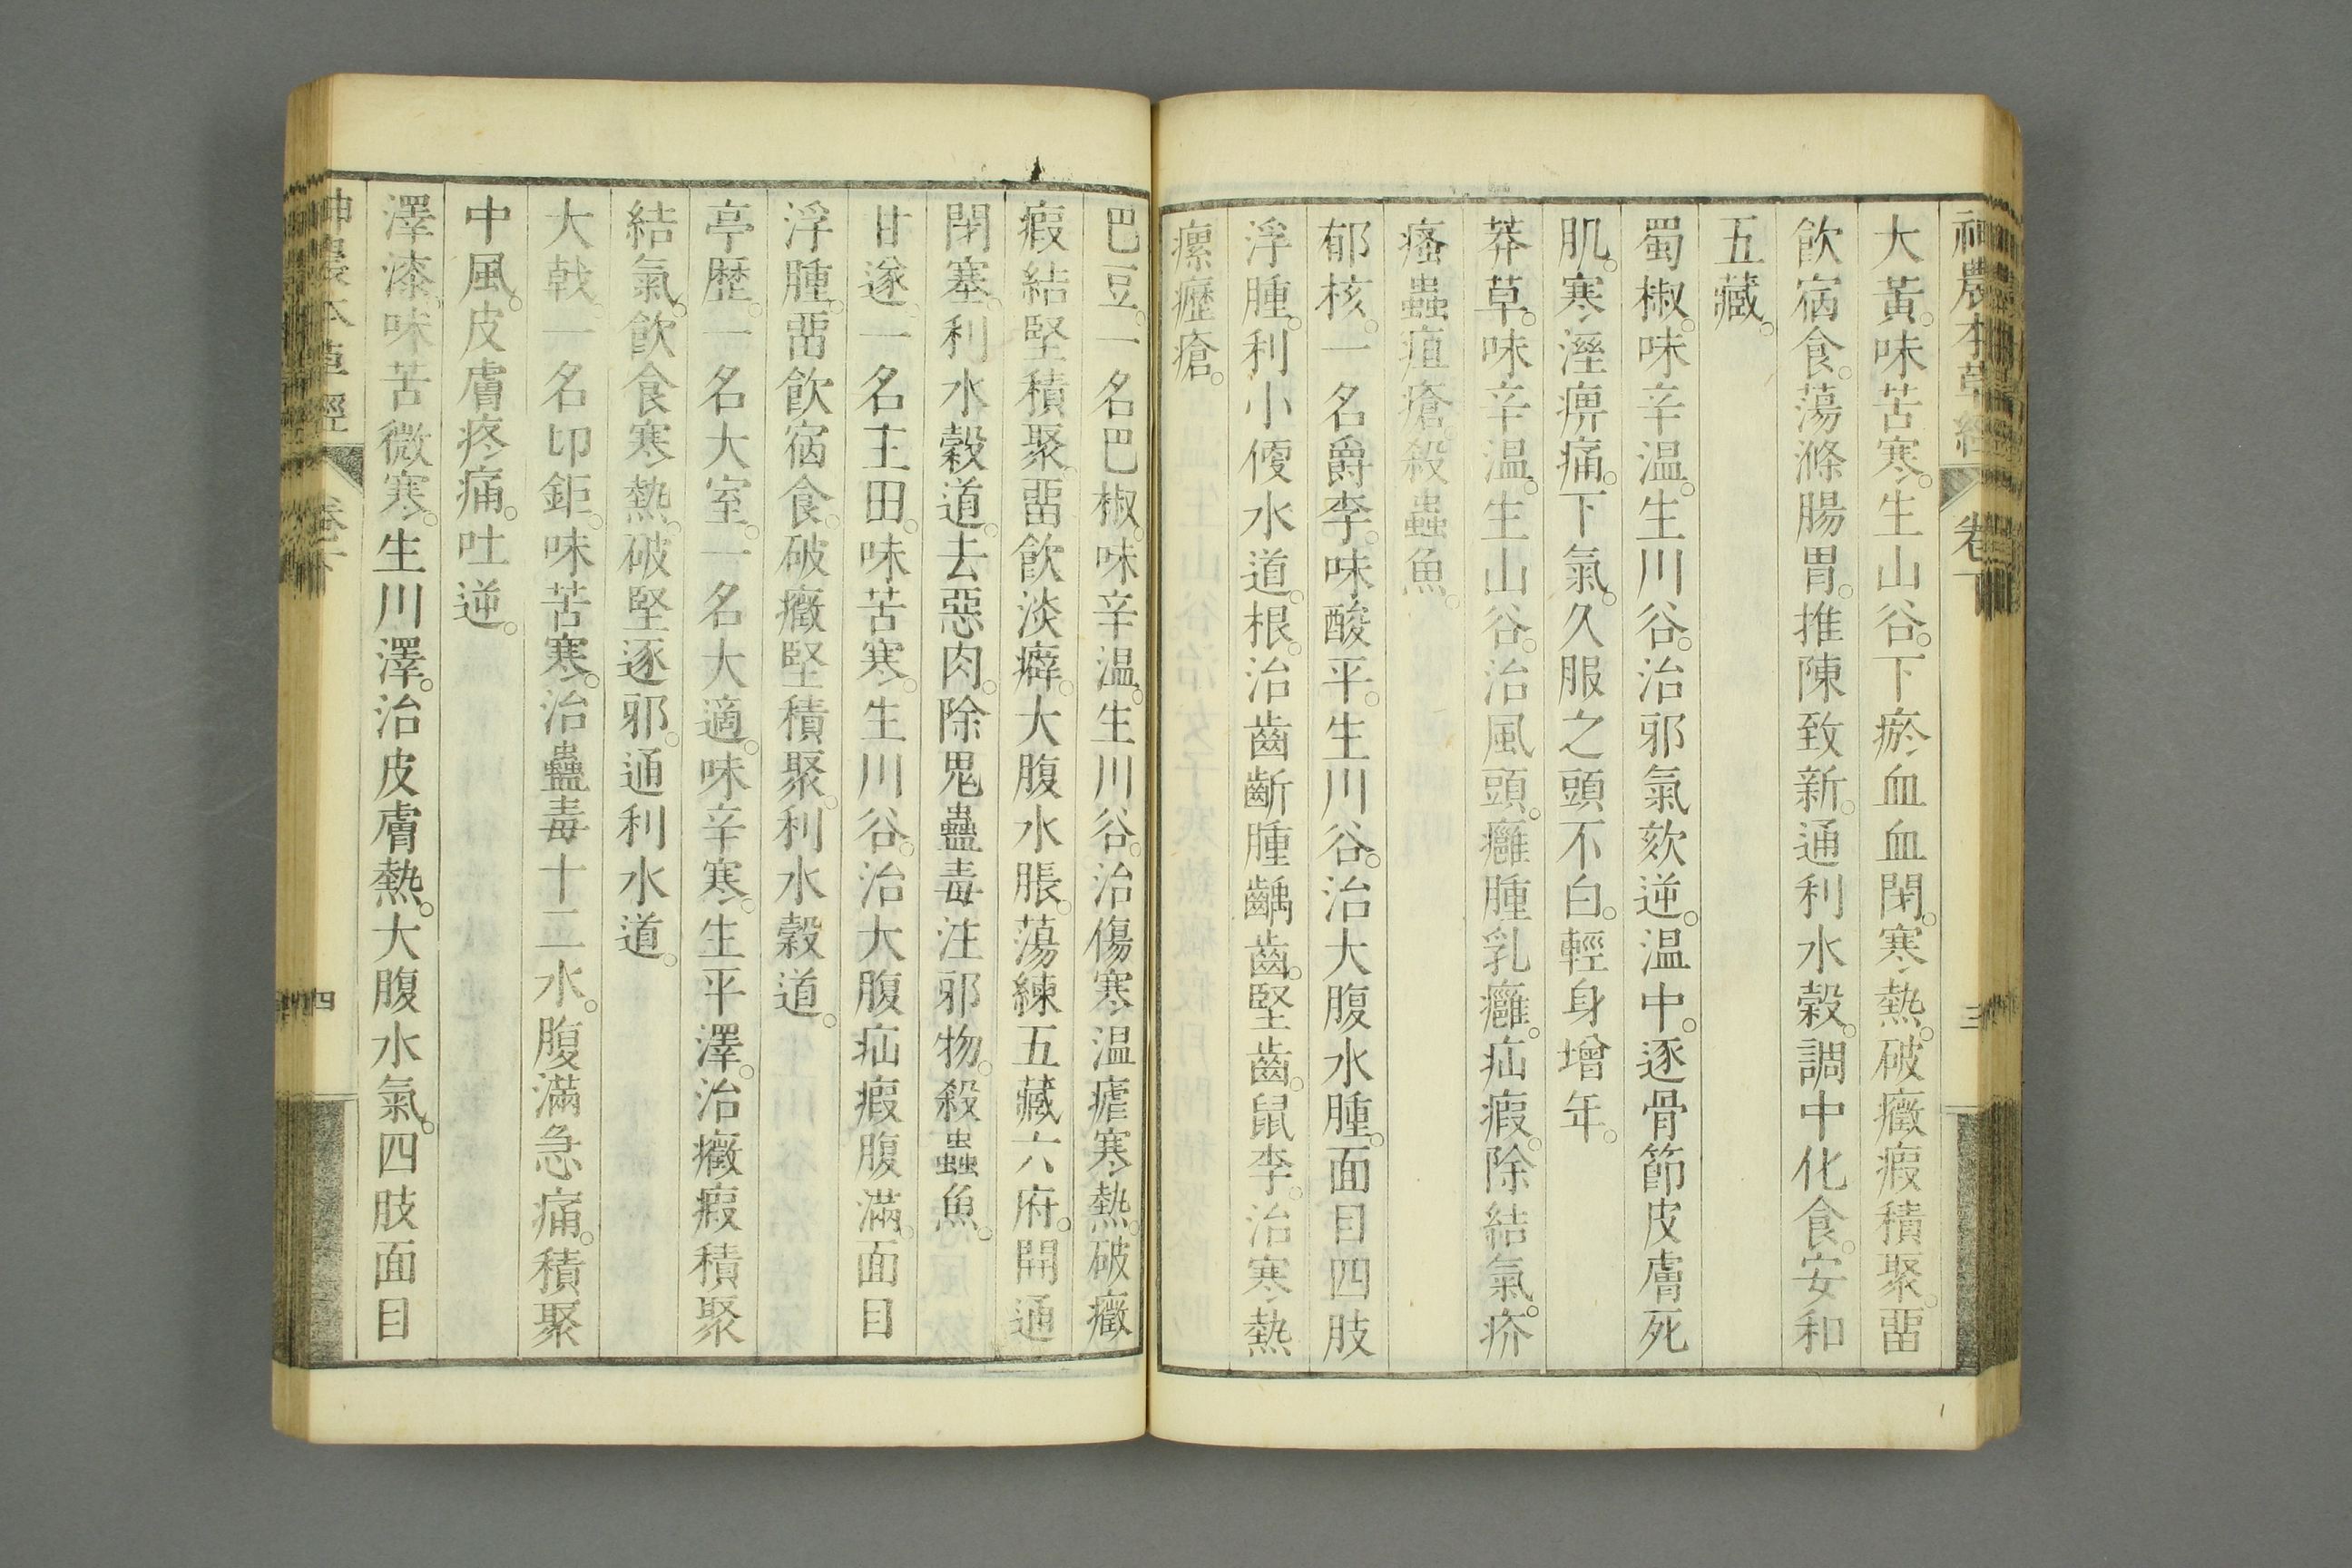 神農本草經 卷下 三
大黃。味苦寒。生山谷。下瘀血血閉。寒熱。破癥瘕積聚。畱
飲宿食。蕩滌腸胃。推陳致新。通利水穀。調中化食。安和
五藏。
蜀椒。味辛温。生川谷。治邪氣欬逆。温中。逐骨節皮膚死
肌。寒溼痹痛。下氣。久服之頭不白。輕身增年。
莽草。味辛温。生山谷。治風頭。癰腫乳癰。疝瘕。除結氣。疥
瘙蟲疽瘡。殺蟲魚。
郁核。一名爵李。味酸平。生川谷。治大腹水腫。面目四肢
浮腫。利小便水道。根。治齒齗腫齲齒。堅齒。鼠李。治寒熱
瘰癧瘡。
巴豆。一名巴椒。味辛温。生川谷。治傷寒温瘧寒熱。破癥
瘕結堅積聚。畱飲淡癖。大腹水脹。蕩練五藏六府。開通
閉塞。利水穀道。去惡肉。除鬼蠱毒注邪物。殺蟲魚。
甘遂。一名王田。味苦寒。生川谷。治大腹疝瘕腹滿。面目
浮腫。畱飲宿食。破癥堅積聚。利水穀道。
亭歷。一名大室。一名大適。味辛寒。生平澤。治癥瘕積聚
結氣。飲食寒熱。破堅逐邪。通利水道。
大戟。一名卭鉅。味苦寒。治蠱毒十二水。腹滿急痛。積聚
中風。皮膚疼痛。吐逆。
澤漆。味苦微寒。生川澤。治皮膚熱。大腹水氣。四肢面目
神農本草經 卷下 四